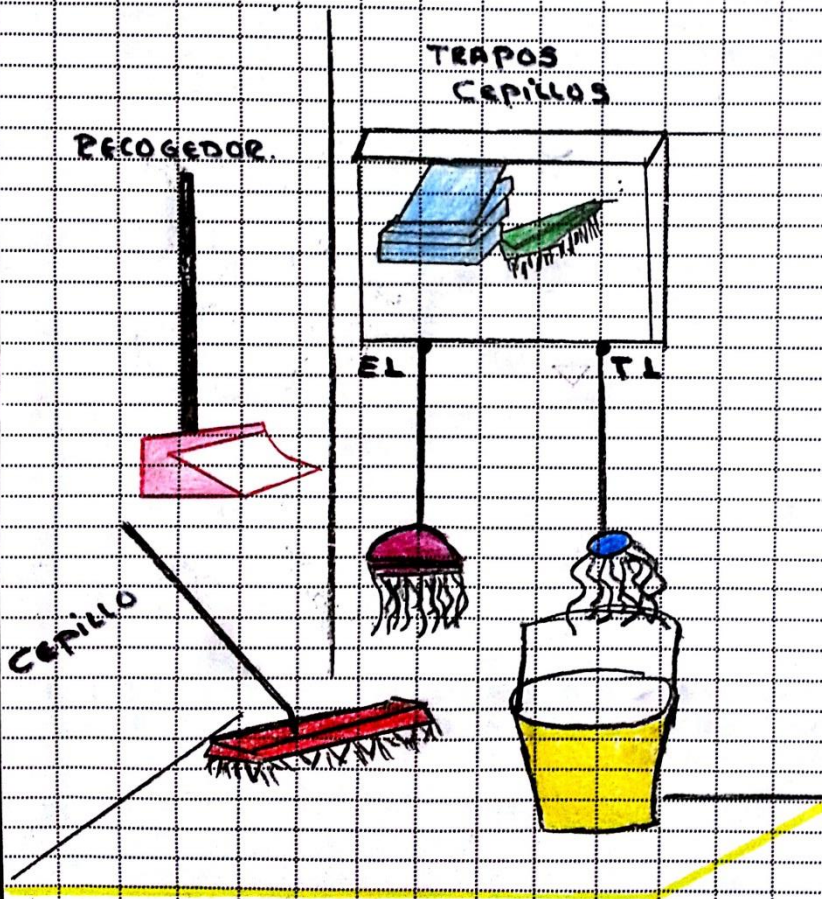 TRAPOS
CEPILLOS
RECOGEDOR.
EL
T.L
CEPILLO